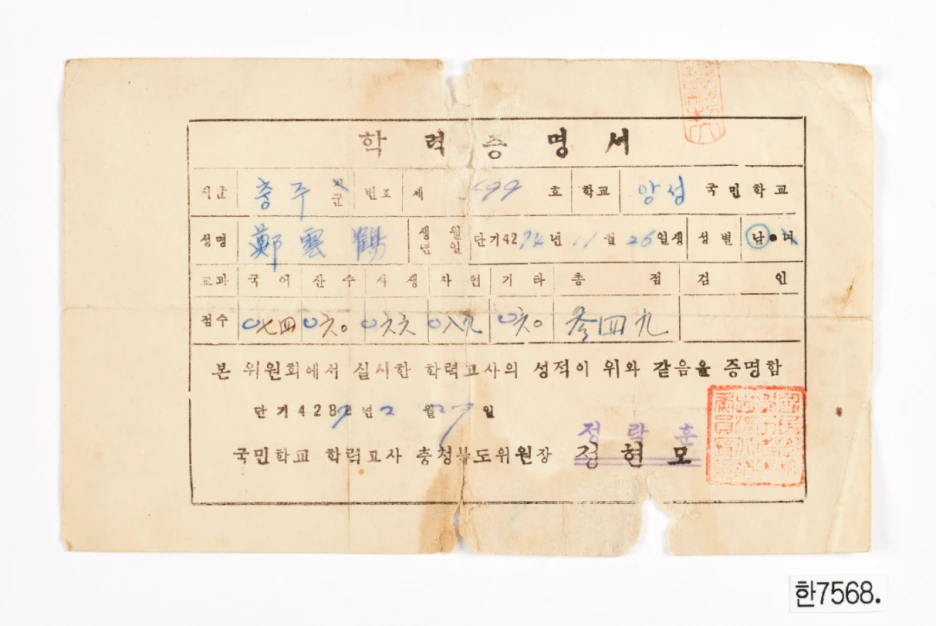 학력증명서
시군 충주 시군 번호 제 499 호 학교 앙성 국민학교
성명 鄭雲鶴 생년월일 단기4274년 11월 26일생 성별 남•녀
교과 국어 산수 사생 자연 기타 총점 검인
점수 〇七四 〇六〇 〇六六 〇八九 〇六〇 叁四九
본 위원회에서 실시한 학력고사의 성적이 위와 같음을 증명함
단기428 년 2월 27일
정락훈
국민학교 학력고사 충청북도위원장 정현모
한7568.